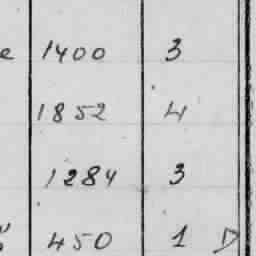 1400 3
1852 4
1284 3
450 1